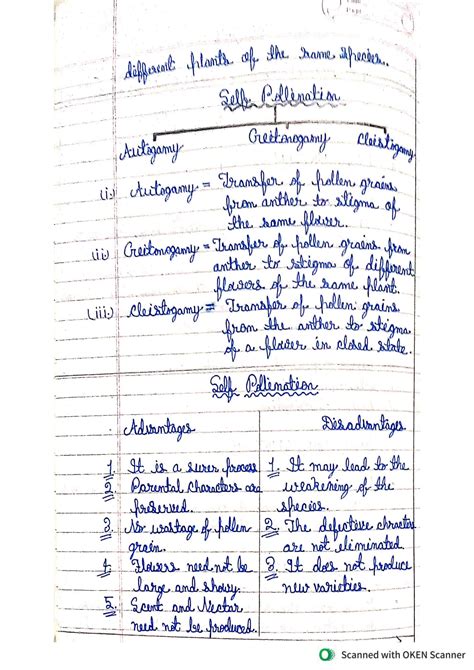 Page
different plants of the same species.
Self Pollination
Autogamy Geitonogamy Cleistogamy
(i.) Autogamy = Transfer of pollen grains
from anther to stigma of
the same flower.
(ii) Geitonogamy = Transfer of pollen grains from
anther to stigma of different
flowers of the same plant.
(iii.) Cleistogamy = Transfer of pollen grains
from the anther to stigma
of a flower in closed state.
Self Pollination
Advantages Disadvantages
1. It is a surer process 1. It may lead to the
2. Parental characters are weakening of the
preserved. species.
3. No wastage of pollen 2. The defective characters
grain. are not eliminated.
4. Flowers need not be 3. It does not produce
large and showy. new varieties.
5. Scent and Nectar
need not be produced.
Scanned with OKEN Scanner